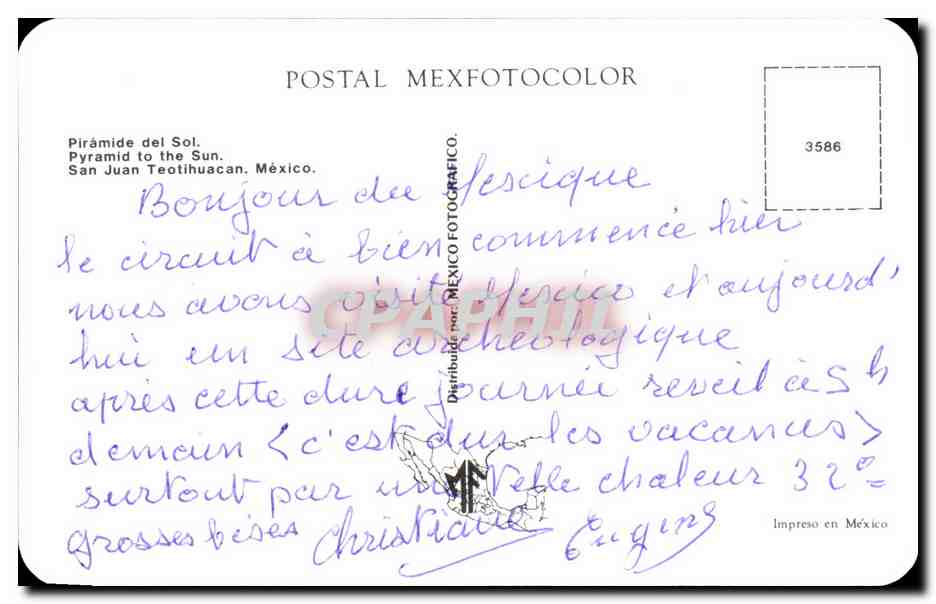 POSTAL MEXFOTOCOLOR
Pirámide del Sol.
Pyramid to the Sun.
San Juan Teotihuacan. México.
3586
Distribuido por: MEXICO FOTOGRAFICO.
Bonjour du Mexique
le circuit à bien commencé hier
nous avons visité Mexico et aujourd'
hui un site archeologique
après cette dure journée reveil à 5h
demain <c'est dur les vacances>
surtout par une telle chaleur 32°
grosses bises Christiane Eugene
MF
Impreso en México
CPAPHIL